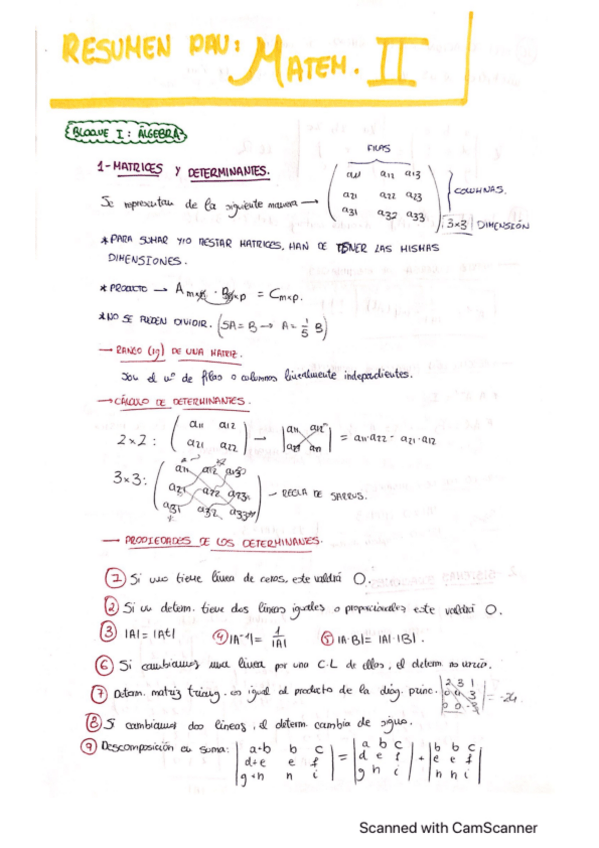 RESUMEN PAU: MATEM. II
BLOQUE I: ÁLGEBRA
1- MATRICES Y DETERMINANTES.
FILAS
Se representan de la siguiente manera → ( a11 a12 a13
a21 a22 a23
a31 a32 a33 ) COLUMNAS.
3×3 DIMENSIÓN
* PARA SUMAR Y/O RESTAR MATRICES, HAN DE TENER LAS MISMAS
DIMENSIONES.
* PRODUCTO → Amxn · Bnxp = Cmxp.
* NO SE PUEDEN DIVIDIR. (5A = B → A = 1/5 B)
→ RANGO (rg) DE UNA MATRIZ.
Son el nº de filas o columnas linealmente independientes.
→ CÁLCULO DE DETERMINANTES.
2×2: ( a11 a12
a21 a22 ) → | a11 a12
a21 a22 | = a11·a22 - a21·a12
3×3: ( a11 a12 a13
a21 a22 a23
a31 a32 a33 ) → REGLA DE SARRUS.
→ PROPIEDADES DE LOS DETERMINANTES.
1 Si uno tiene línea de ceros, este valdrá 0.
2 Si un determ. tiene dos líneas iguales o proporcionales este valdrá 0.
3 |A| = |At| 4 |A⁻¹| = 1/|A| 5 |A·B| = |A|·|B|.
6 Si cambiamos una línea por una C.L de ellos, el determ. no varía.
7 Determ. matriz triang. es igual al producto de la diag. princ. | 2 3 1
0 4 3
0 0 -3 | = -24.
8 Si cambiamos dos líneas, el determ. cambia de signo.
9 Descomposición en suma: | a+b b c
d+e e f
g+h h i | = | a b c
d e f
g h i | + | b b c
e e f
h h i |
Scanned with CamScanner